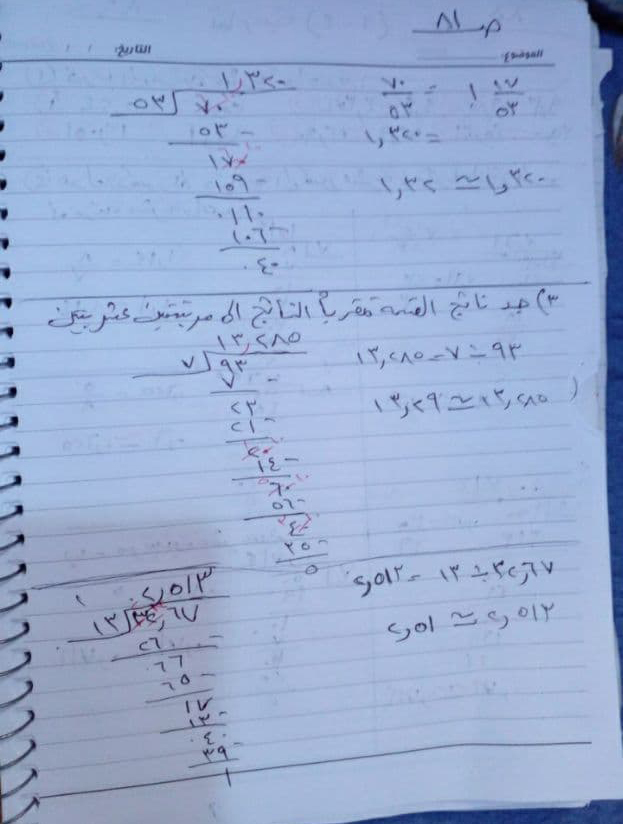 ص ٨١
الموضوع: التاريخ:
١ ١٧/٥٣ = ٧٠/٥٣
= ١,٣٢٠
١,٣٢٠ ≃ ١,٣٢
١,٣٢٠
٥٣ ٧٠
٥٣ -
١٧٠
١٥٩
١١٠
١٠٦
٠٤٠
٣) جد ناتج القسمة مقرباً الناتج الى مرتبتين عشريتين
٩٣ ÷ ٧ = ١٣,٢٨٥
١٣,٢٨٥ ≃ ١٣,٢٩
١٣,٢٨٥
٧ ٩٣
٧ -
٢٣
٢١ -
٢٠
١٤ -
٦٠
٥٦ -
٤٠
٣٥ -
٥
٣٢,٦٧ ÷ ١٣ = ٢,٥١٣
٢,٥١٣ ≃ ٢,٥١
٢,٥١٣
١٣ ٣٢,٦٧
٢٦ -
٦٦
٦٥ -
١٧
١٣ -
٤٠
٣٩ -
١